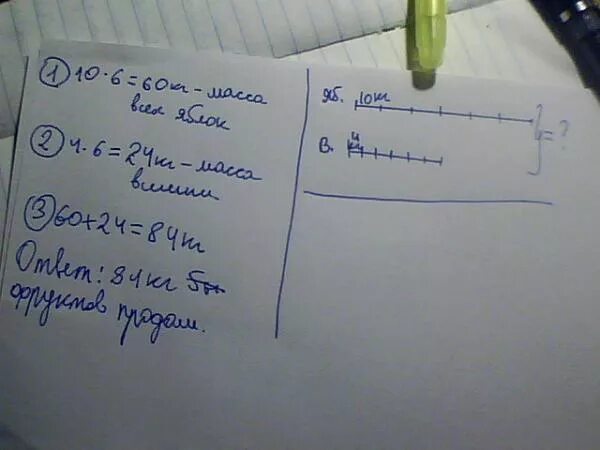 ① 10·6=60кг – масса
всех яблок
② 4·6=24кг – масса
вишни
③ 60+24=84кг
Ответ: 84кг
фруктов продали.
яб. 10кг
В. 4 кг
= ?